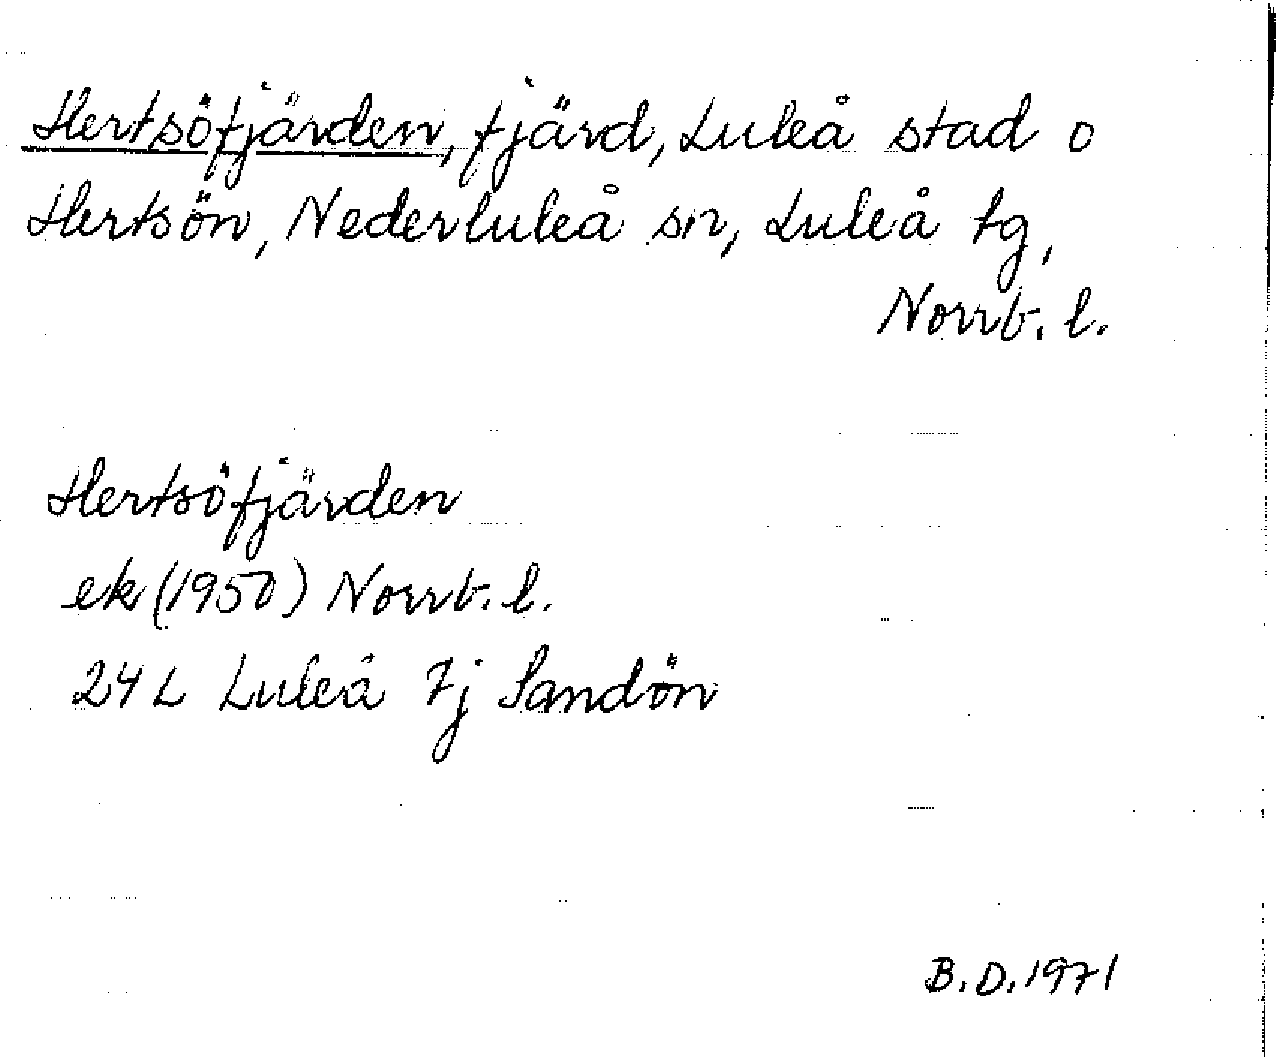 Hertsöfjärden, fjärd, Luleå stad o
Hertsön, Nederluleå sn, Luleå tg,
Norrb. l.
Hertsöfjärden
ek (1950) Norrb. l.
24 L Luleå 7j Sandön
B.D. 1971